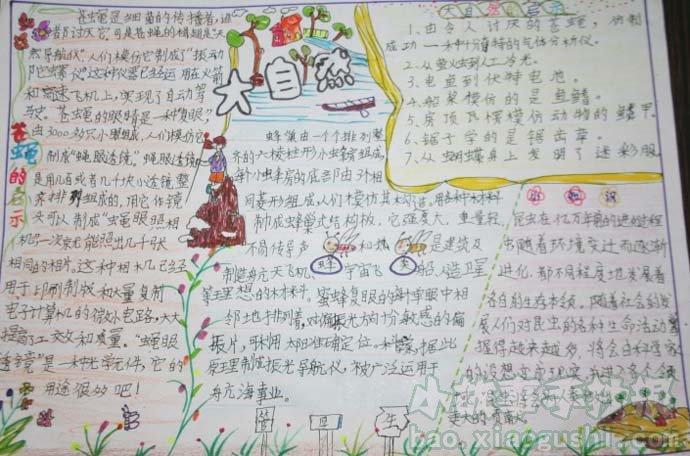 苍蝇的启示
苍蝇是细菌的传播者,谁
都讨厌它,可是苍蝇的楫翅是"天
然导航仪",人们模仿它制成"振动
陀螺仪"这种仪器已经运用在火箭
和高速飞机上,实现了自动驾
驶。苍蝇的眼睛是一种"复眼"
由3000多只小眼组成,人们模仿它
制成"蝇眼透镜"。"蝇眼透镜"
是用几百或者几千块小透镜整
齐排列组成的,用它作镜
头可以制成"蝇眼照相
机"一次就能照出几千张
相同的相片。这种相机已经
用于印刷制版和大量复制
电子计算机的微小电路,大大
提高工效和质量。"蝇眼
透镜"是一种光学元件,它的
用途很多吧!
大自然
蜂巢由一个个排列整
齐的六棱柱形小蜂房组成,
每个小蜂房的底部由3个相
同菱形组成,人们模仿其构造,用各种材料
制成蜂巢式结构板,它强度大,重量轻,
不易传导声
和热
是建筑及
蜂
类
制造航天飞机、宇宙飞船、人造卫星
等理想的材料。蜜蜂复眼的每个单眼中相
邻地排列着,对偏振光方向十分敏感的偏
振片,可利用太阳准确定位。科学家据此
原理制成偏振光导航仪,被广泛运用于
航海事业。
大自然的启示
1、由令人讨厌的苍蝇,仿制
成功一种十分奇特的气体分析仪。
2、从萤火虫到人工冷光。
3、电鱼到伏特电池。
4、船桨模仿的是鱼鳍。
5、房顶瓦楞模仿动物的鳞甲。
6、锯子学的是锯齿草。
7、从蝴蝶身上发明了迷彩服
昆虫在亿万年的进化过程
中随着环境变迁而逐渐
进化,都不同程度地发展着
各自的生存本领。随着社会的发
展人们对昆虫的各种生命活动掌
握得越来越多,
bao.xiaogushi.com